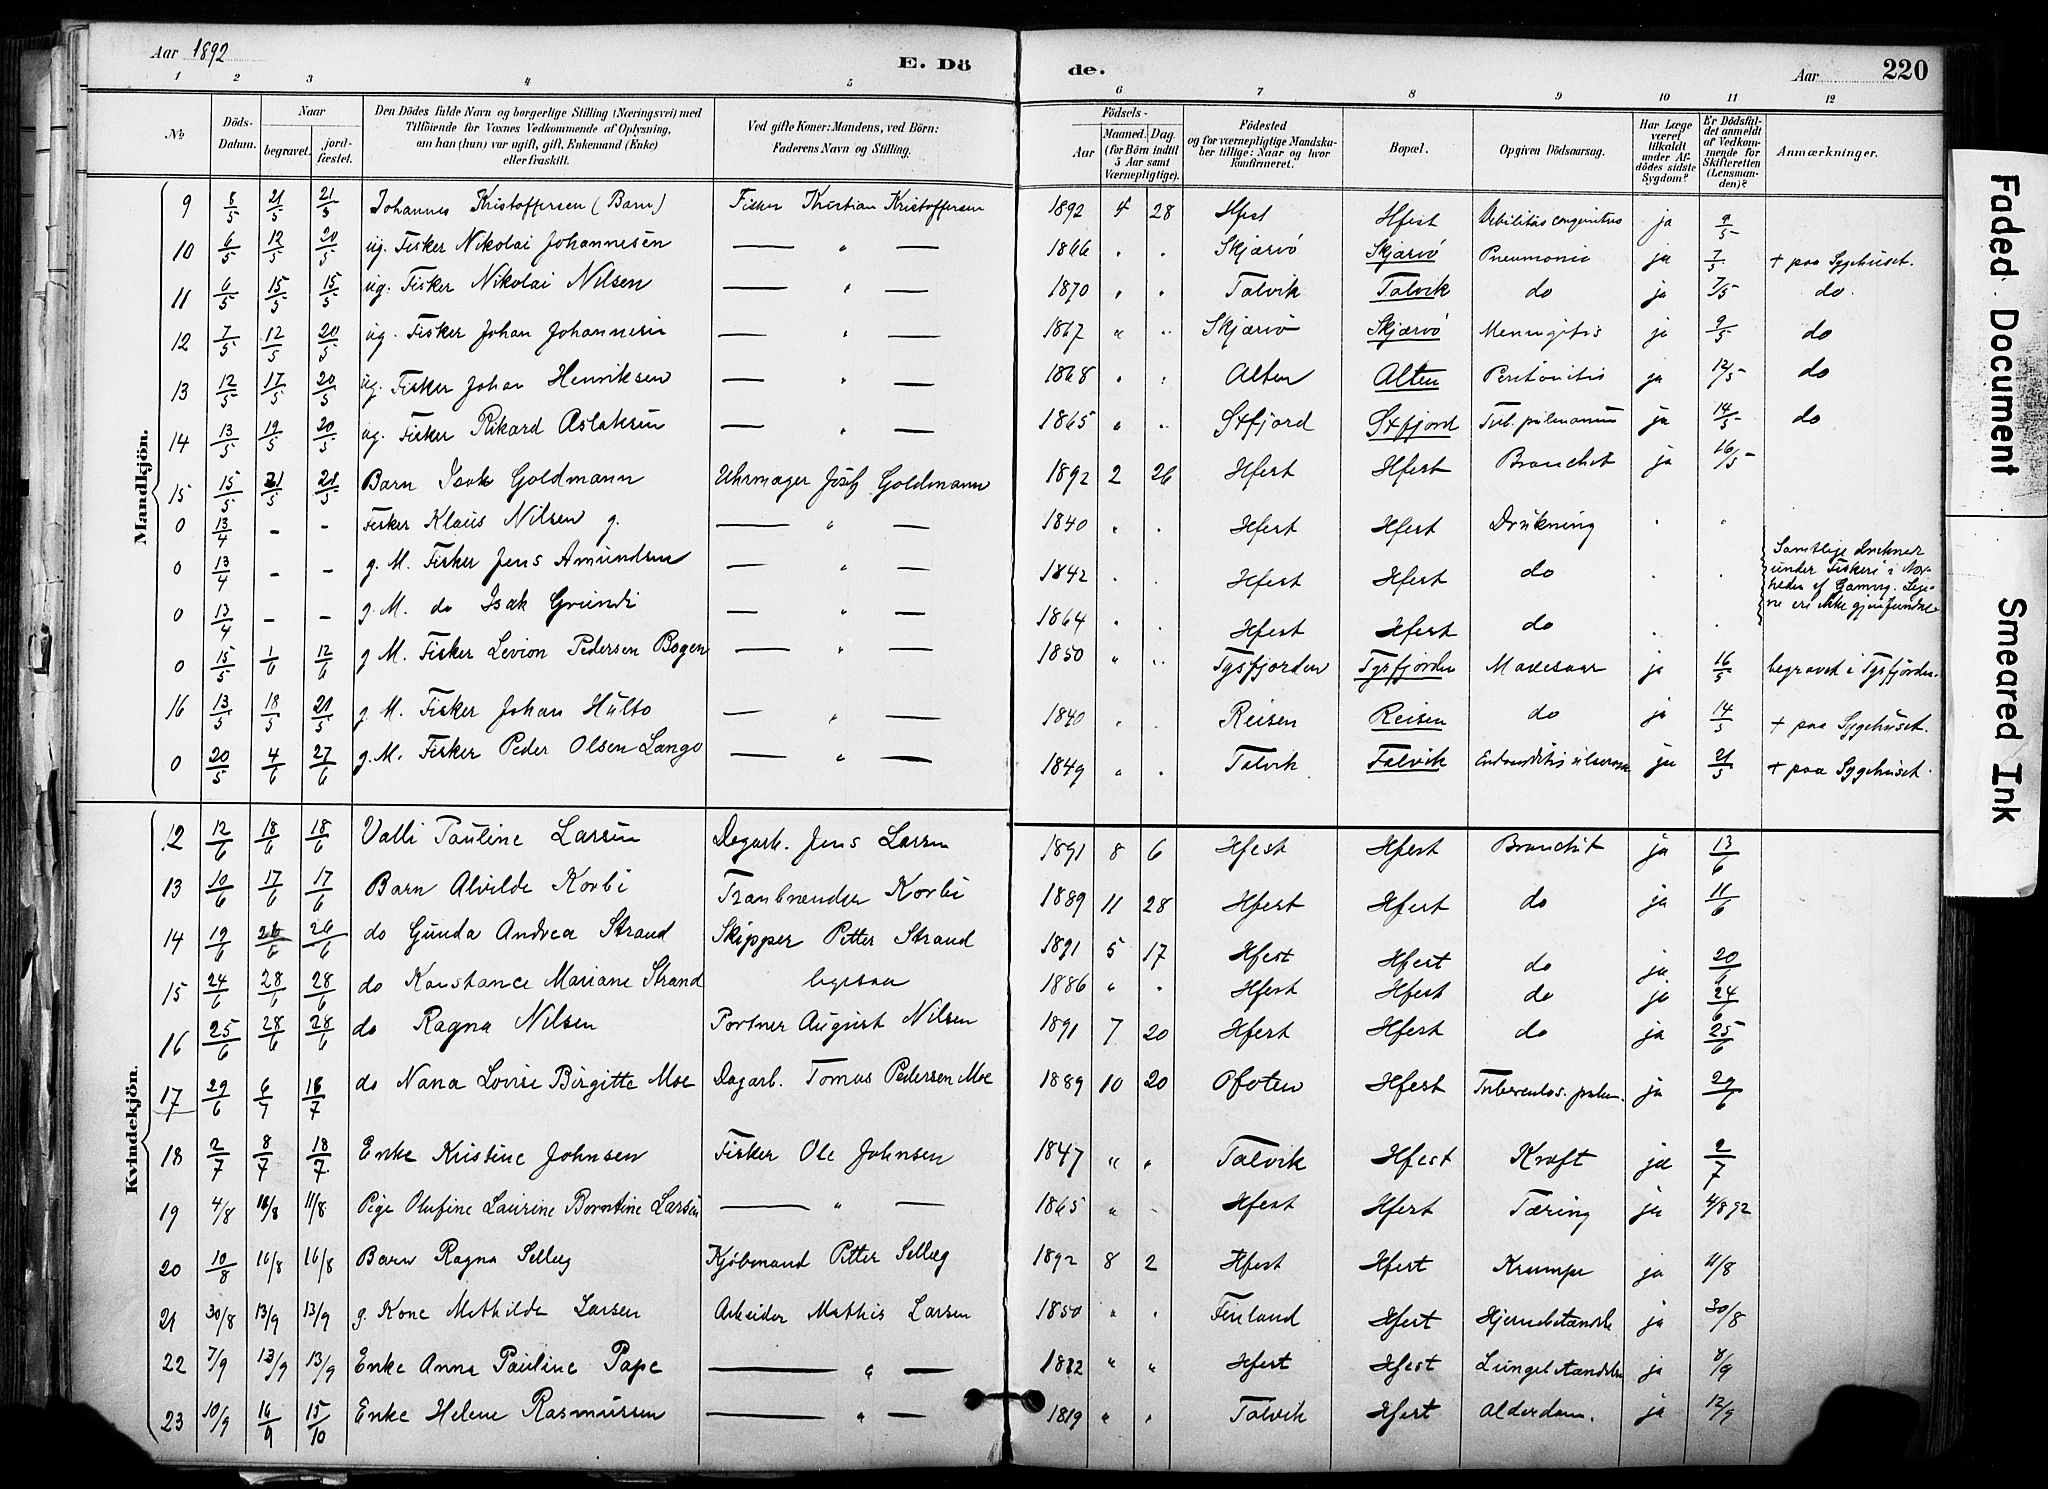 Aar 1892
E. Dö
de.
Aar
220
1 2 3 4 5 6 7 8 9 10 11 12
No
Döds-
Datum.
Naar
begravet.
jord-
fæstet.
Den Dödes fulde Navn og borgerlige Stilling (Næringsvei) med
Tilföiende for Voxnes Vedkommende af Oplysning,
om han (hun) var ugift, gift, Enkemand (Enke)
eller fraskilt.
Ved gifte Koner: Mandens, ved Börn:
Faderens Navn og Stilling.
Födsels-
Aar
Maaned. Dag.
(for Börn indtil
5 Aar samt
Værnepligtige).
Födested
og for værnepligtige Mandska-
ber tillige: Naar og hvor
konfirmeret.
Bopæl.
Opgiven Dödsaarsag.
Har Læge
været
tilkaldt
under Af-
dödes sidste
Sygdom?
Er Dödsfal-
det anmeldt
af Vedkom-
mende for
Skifteretten
(Lensman-
den)?
Anmærkninger.
Mandkjön.
9 8/5 21/5 21/5 Johannes Kristoffersen (Barn) Fisker Kristian Kristoffersen 1892 4 28 Hfest Hfest Debilitas congenitus ja 9/5
10 6/5 12/5 20/5 ug. Fisker Nikolai Johannesen — " — 1866 " " Skjærvö Skjærvö Pneumonie ja 7/5 + paa Sygehuset.
11 6/5 15/5 15/5 ug. Fisker Nikolai Nilsen — " — 1870 " " Talvik Talvik do ja 7/5 do.
12 7/5 12/5 20/5 ug. Fisker Johan Johannesen — " — 1867 " " Skjærvö Skjærvö Meningitis ja 9/5 do
13 12/5 17/5 20/5 ug. Fisker Johan Henriksen — " — 1868 " " Alten Alten Peritonitis ja 12/5 do
14 13/5 19/5 20/5 ug. Fisker Rikard Aslaksen — " — 1865 " " Sxfjord Sxfjord Tub. pulmonum ja 14/5 do
15 15/5 21/5 21/5 Barn Isak Goldmann Uhrmager Josef Goldmann 1892 2 26 Hfest Hfest Bronchit ja 16/5
0 13/4 - - Fisker Klaus Nilsen g. — " — 1840 " " Hfest Hfest Drukning " "
0 13/4 - - g. M. Fisker Jens Amundsen — " — 1842 " " Hfest Hfest do " "
Samtlige druknede
under Fiskeri i Nær-
heden af Gamvig. Lige-
ne ere ikke gjenfundet
0 13/4 - - g. M. do Isak Grundi — " — 1864 " " Hfest Hfest do . .
0 15/5 1/6 12/6 g. M. Fisker Levion Pedersen Bogen — " — 1850 " " Tysfjorden Tysfjorden Mavesaar ja 16/5 begravet i Tysfjorden.
16 13/5 18/5 21/5 g. M. Fisker Johan Hulto — " — 1840 " " Reisen Reisen do ja 14/5 + paa Sygehuset.
0 20/5 4/6 27/6 g. M. Fisker Peder Olsen Lango — " — 1849 " " Talvik Talvik ja 21/5 + paa Sygehuset.
Kvindekjön.
12 12/6 18/6 18/6 Valli Pauline Larsen Dagarb. Jens Larsen 1891 8 6 Hfest Hfest Bronchit ja 13/6
13 10/6 17/6 17/6 Barn Alvilde Korbi Tranbrænder Korbi 1889 11 28 Hfest Hfest do ja 11/6
14 19/6 26/6 26/6 do Gunda Andrea Strand Skipper Petter Strand 1891 5 17 Hfest Hfest do ja 20/6
15 24/6 28/6 28/6 do Konstance Mariane Strand ligesaa 1886 " " Hfest Hfest do ja 24/6
16 25/6 28/6 28/6 do Ragna Nilsen Portner August Nilsen 1891 7 20 Hfest Hfest do ja 25/6
17 29/6 6/7 16/7 do Nana Lovise Birgitte Moe Dagarb. Tomas Pedersen Moe 1889 10 20 Ofoten Hfest Tuberculos. pulm. ja 29/6
18 2/7 8/7 18/7 Enke Kristine Johnsen Fisker Ole Johnsen 1847 " " Talvik Hfest Kræft ja 2/7
19 4/8 11/8 11/8 Pige Olufine Laurine Berntine Larsen — " — 1865 " " Hfest Hfest Tæring ja 4/8 92
20 10/8 16/8 16/8 Barn Ragna Selleg Kjöbmand Petter Selleg 1892 8 2 Hfest Hfest Krampe ja 11/8
21 30/8 13/9 13/9 g. Kone Mathilde Larsen Arbeider Mathis Larsen 1850 " " Finland Hfest Hjernebetændelse ja 30/8
22 7/9 13/9 13/9 Enke Anna Pauline Pape — " — 1812 " " Hfest Hfest Lungebetændelse ja 8/9
23 10/9 16/9 15/10 Enke Helene Rasmussen — " — 1819 " " Talvik Hfest Alderdom. ja 12/9
Faded Document
Smeared Ink